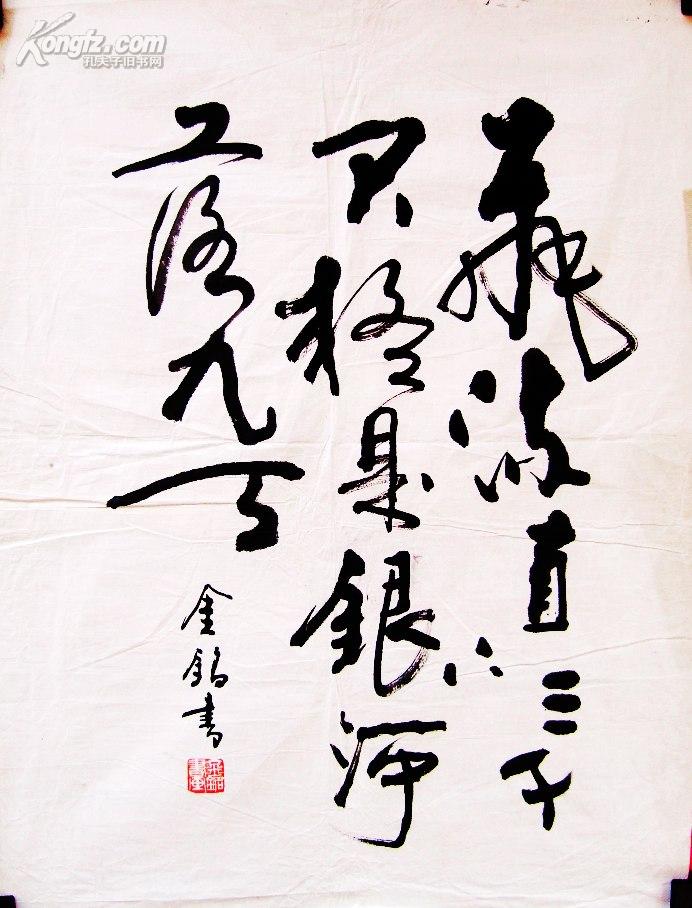 Kongfz.com
孔夫子旧书网
飛流直下三千
尺疑是銀河
落九天
金銘書